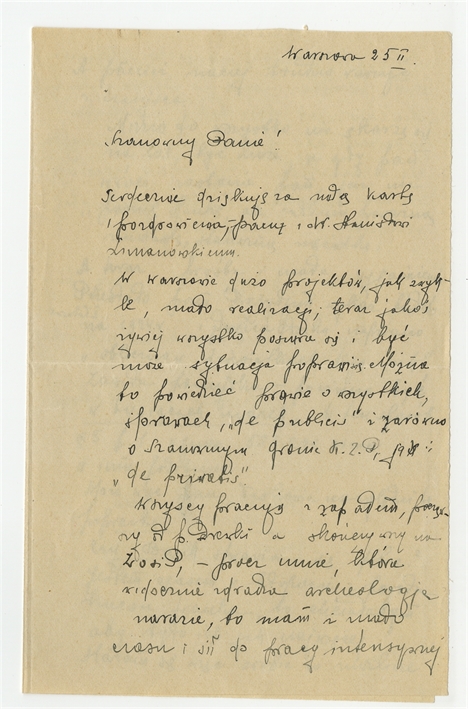 Warszawa 25 II.
Szanowny Panie!
Serdecznie dziękuję za miłą kartę
i pozdrowienia, – Panu i dr. Stanisławowi
Limanowskiemu.
W Warszawie dużo projektów, jak zwyk-
le, mało realizacji; teraz jakoś
żywiej wszystko posuwa się i być
może sytuacja poprawi się. Można
to powiedzieć prawie o wszystkich
sprawach, „de publicis" i zarówno
o Szanownym gronie K. Z. P., jak i
„de privatis".
Wszyscy pracują z zapałem, począw-
szy od p. a skończywszy na
Zosi, – prócz mnie, która
widocznie zdradza archeologję
narazie, bo mam i mało
czasu i sił do pracy intensywnej